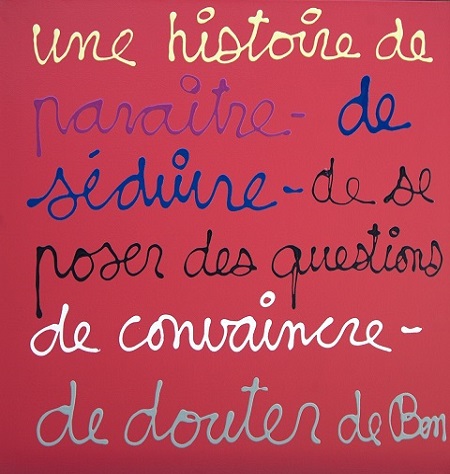 une histoire de
paraitre - de
séduire - de se
poser des questions
de convaincre -
de douter de Ben